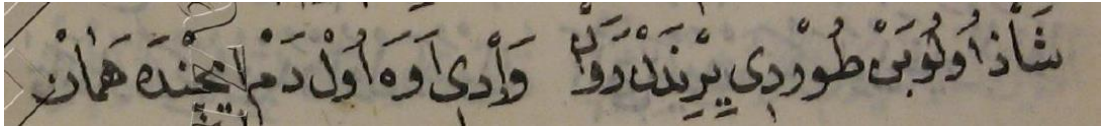 شَاذْ اُولُوبَنْ طُوْرْدِي يِرِنْدَنْ رَوَانْ وَاْرْدِي اَوَه اُولْ دَمْ اِيچِنْدَه هَمَانْ